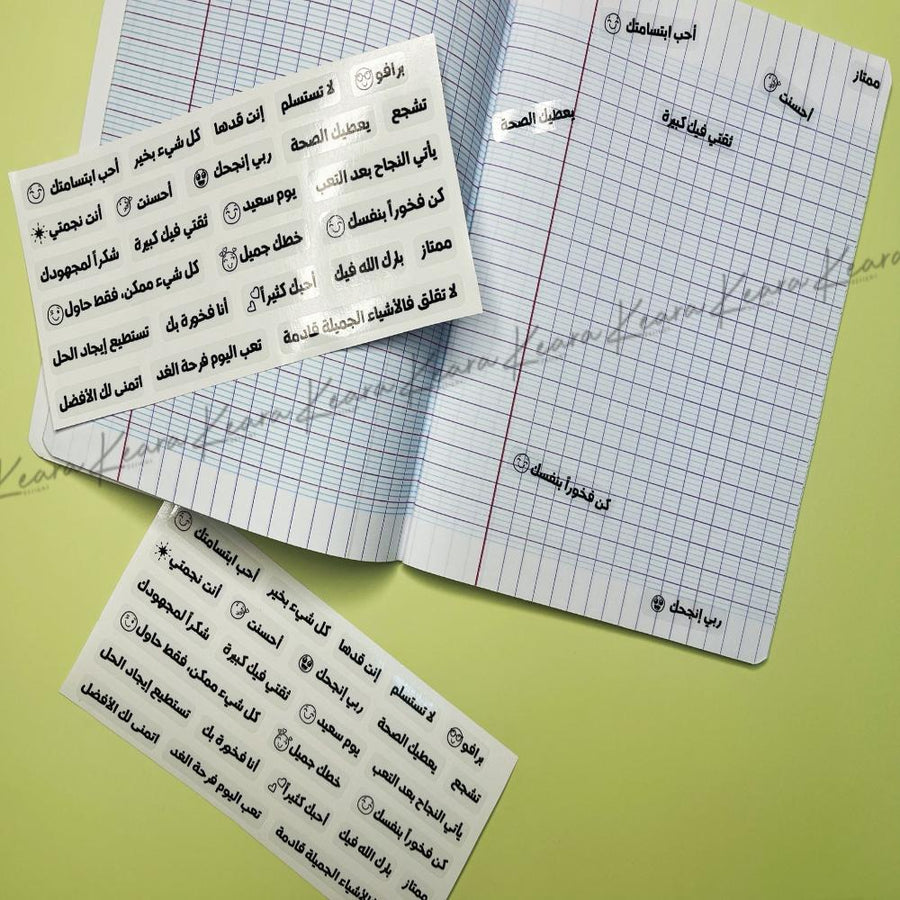 برافو
لا تستسلم
إنت قدها
كل شيء بخير
أحب ابتسامتك
تشجع
يعطيك الصحة
ربي إنجحك
أحسنت
أنت نجمتي
يأتي النجاح بعد التعب
يوم سعيد
ثقتي فيك كبيرة
شكراً لمجهودك
كن فخوراً بنفسك
خطك جميل
كل شيء ممكن، فقط حاول
ممتاز
بارك الله فيك
أحبك كثيراً
أنا فخورة بك
تستطيع إيجاد الحل
لا تقلق فالأشياء الجميلة قادمة
تعب اليوم فرحة الغد
اتمنى لك الأفضل
أحب ابتسامتك
ممتاز
أحسنت
ثقتي فيك كبيرة
يعطيك الصحة
كن فخوراً بنفسك
ربي إنجحك
Keara Keara Keara Keara Keara Keara Keara Keara Keara
أحب ابتسامتك
كل شيء بخير
إنت قدها
لا تستسلم
برافو
أنت نجمتي
أحسنت
ربي إنجحك
يعطيك الصحة
تشجع
شكراً لمجهودك
ثقتي فيك كبيرة
يوم سعيد
يأتي النجاح بعد التعب
كل شيء ممكن، فقط حاول
خطك جميل
كن فخوراً بنفسك
تستطيع إيجاد الحل
أنا فخورة بك
أحبك كثيراً
بارك الله فيك
ممتاز
اتمنى لك الأفضل
تعب اليوم فرحة الغد
الأشياء الجميلة قادمة